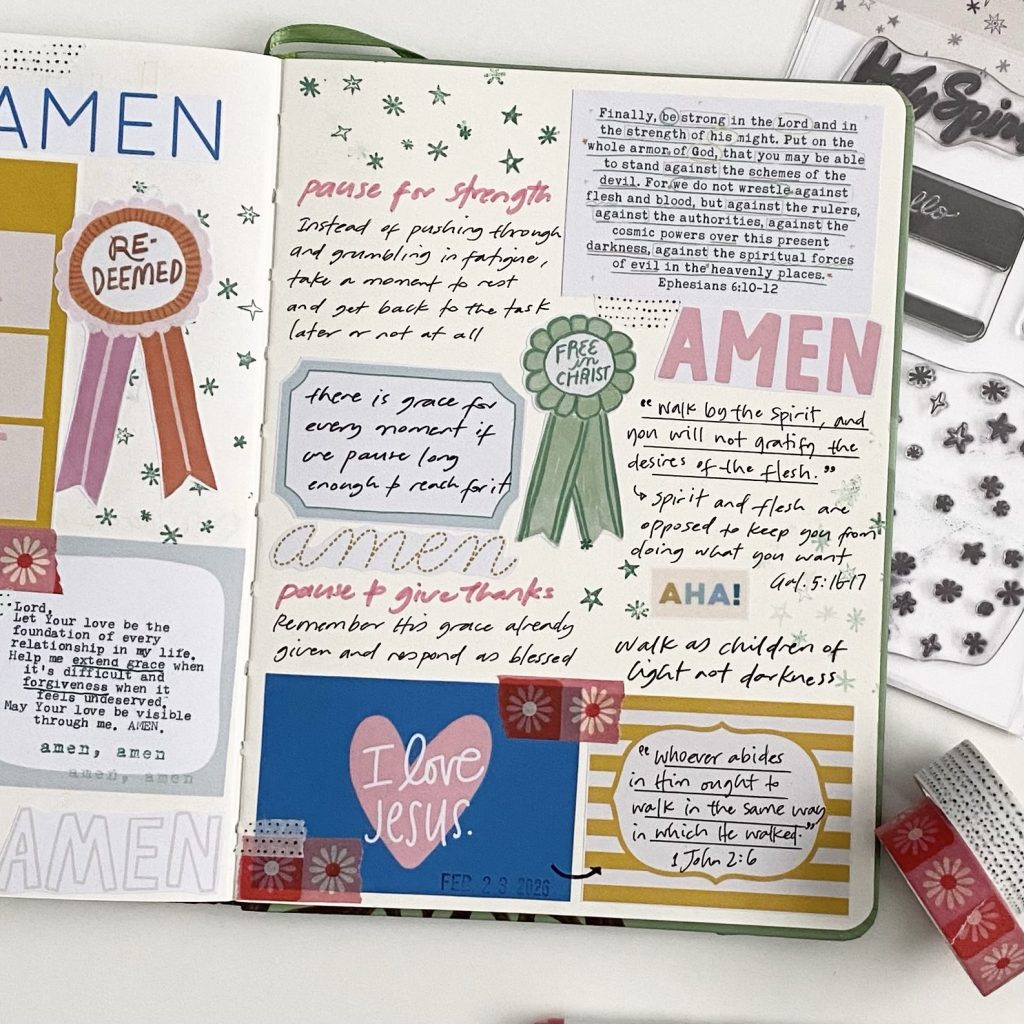 AMEN
RE-
DEEMED
Lord,
Let Your love be the
foundation of every
relationship in my life.
Help me extend grace when
it's difficult and
forgiveness when it
feels undeserved.
May Your love be visible
through me. AMEN.
amen, amen
amen, amen
AMEN
pause for strength
Instead of pushing through
and grumbling in fatigue,
take a moment to rest
and get back to the task
later or not at all
there is grace for
every moment if
we pause long
enough to reach for it
amen
pause to give thanks
Remember His grace already
given and respond as blessed
I love
Jesus.
FEB 23 2026
Finally, be strong in the Lord and in
the strength of his might. Put on the
whole armor of God, that you may be able
to stand against the schemes of the
devil. For we do not wrestle against
flesh and blood, but against the rulers,
against the authorities, against the
cosmic powers over this present
darkness, against the spiritual forces
of evil in the heavenly places.
Ephesians 6:10-12
FREE
in
CHRIST
AMEN
"Walk by the Spirit, and
you will not gratify the
desires of the flesh."
↳ Spirit and flesh are
opposed to keep you from
doing what you want
Gal. 5:16-17
AHA!
Walk as children of
light not darkness
"Whoever abides
in Him ought to
walk in the same way
in which He walked."
1 John 2:6